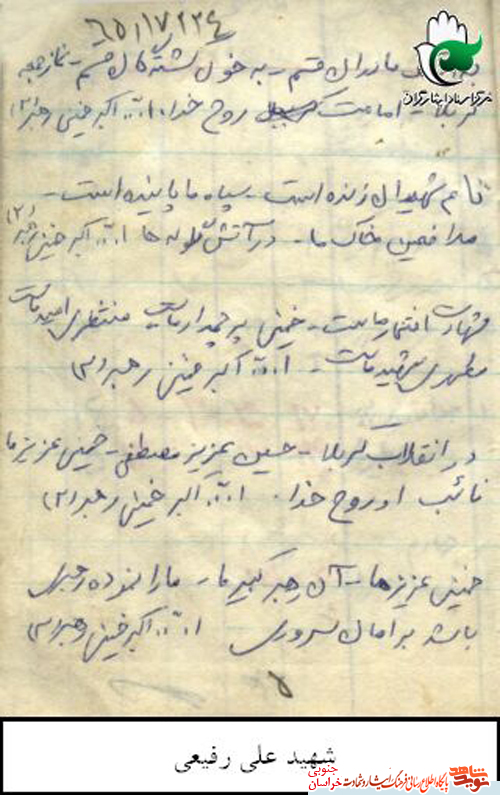 به اشک مادران قسم - به خون کشتگان قسم - نماز جمعه
کربلا - امامت روح خدا. ا... اکبر خمینی رهبر (۲)
نام شهیدان زنده است - سپاه ما پاینده است -
مدافعین خاک ما - در آتش گلوله ها ا... اکبر خمینی رهبر (۲)
شهادت افتخار ماست - خمینی پرچمدار ماست منتظری امید ماست
مطهری شهید ماست - ا... اکبر خمینی رهبر (۲)
در انقلاب کربلا - حسین عزیز مصطفی - خمینی عزیز ما
نائب او روح خدا. ا... اکبر خمینی رهبر (۲)
خمینی عزیز ما - آن رهبر کبیر ما - ما را نموده رهبری
باشد بر امامان سروری ا... اکبر خمینی رهبر (۲)
۸
مرکز اسناد ایثارگران
شهید علی رفیعی
نوید شاهد
پایگاه اطلاع رسانی فرهنگ ایثار و شهادت خراسان جنوبی